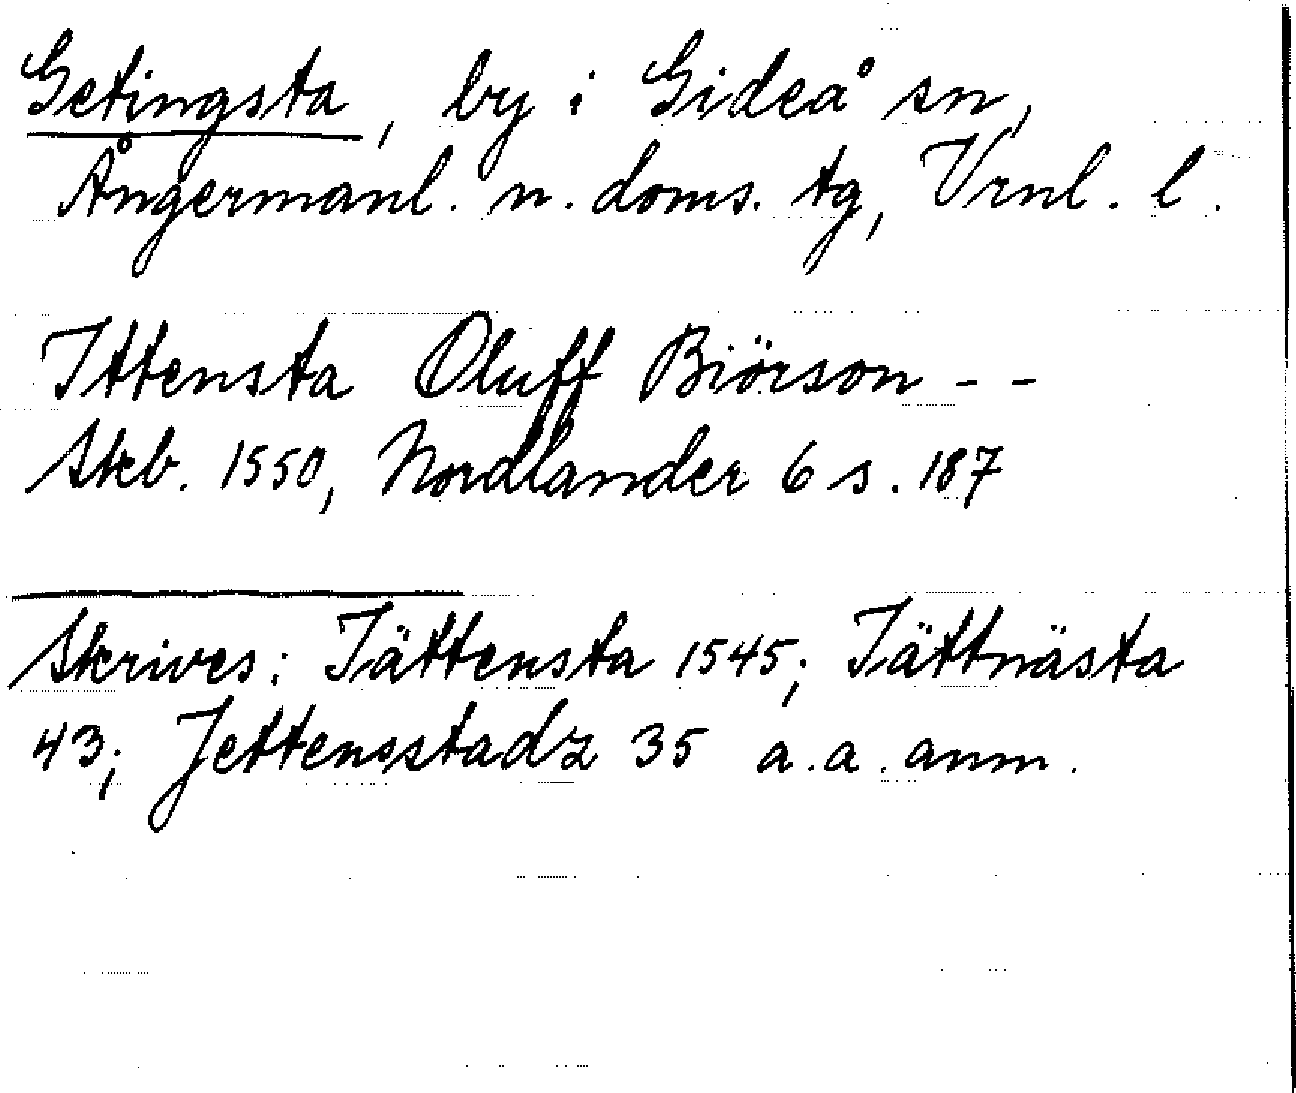 Getingsta, by i Gideå sn,
Ångermanl. n. doms. tg, Vrnl. l.
Ittensta Oluff Biörson - -
Skb. 1550, Nordlander 6 s. 187
Skrives: Iättensta 1545; Iättnästa
43; Jettensstadz 35 a.a. anm.